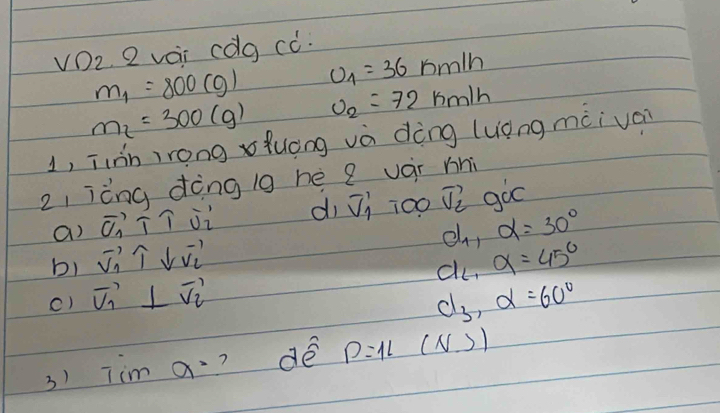 VD2. 2 vật cđg có:
m₁ = 800 (g) v₁ = 36 km/h
m₂ = 300 (g) v₂ = 72 km/h
1, Tính trọng lượng và động lượng mỗi vật
2, Tổng động lg hệ 2 vật khi
a) v₁ ↑↑ v₂ d, v₁ tạo v₂ góc
b) v₁ ↑↓ v₂ d₁, α = 30°
c) v₁ ⊥ v₂ d₂, α = 45°
d₃, α = 60°
3) Tìm α = ? để P = 12 (N.s)